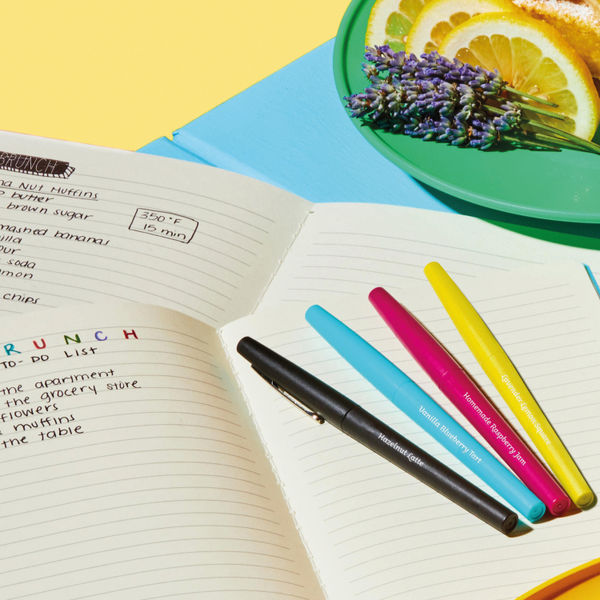 BRUNCH
Nut Muffins
butter
brown sugar
mashed bananas
soda
chips
350°F
15 min
RUNCH
TO-DO LIST
the apartment
the grocery store
flowers
muffins
the table
Hazelnut Latte
Vanilla Blueberry Tart
Homemade Raspberry Jam
Lavender Lemon Square